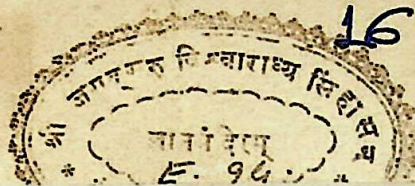 16
श्री जगद्गुरु विश्वाराध्य सिंहासन
E. 94.